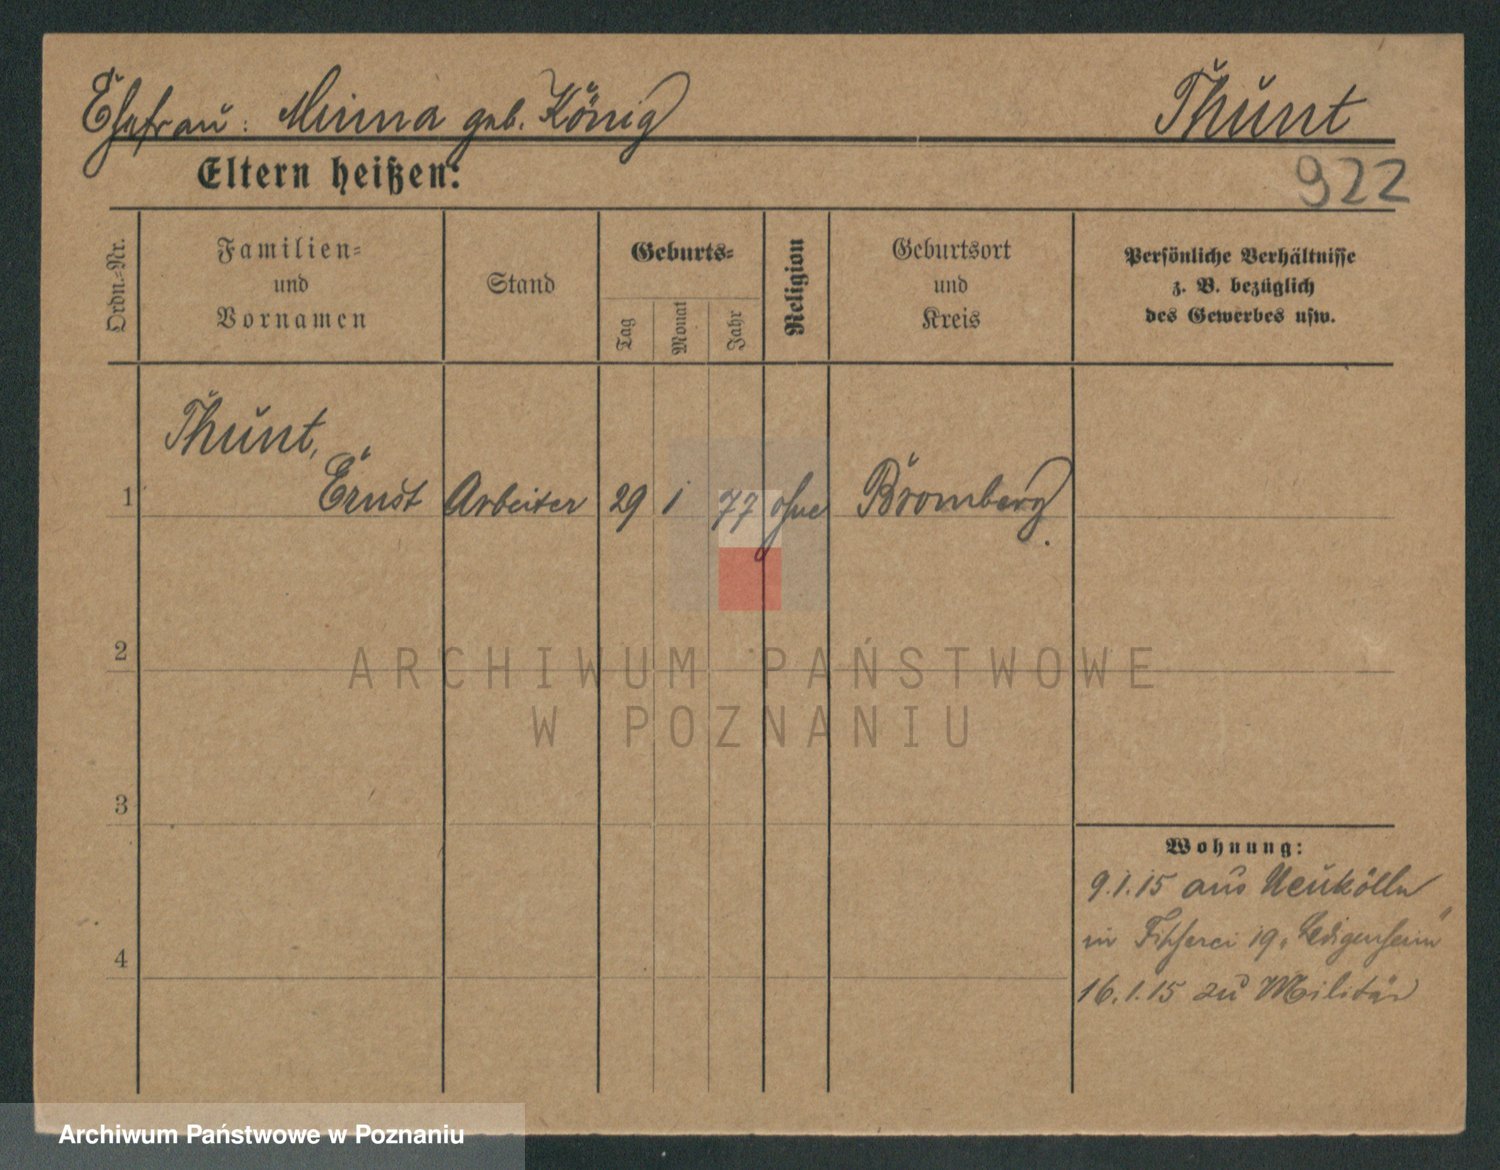 Ehefrau: Minna geb. König Thunt
Eltern heißen:
922
Ordn.-Nr.
Familien-
und
Vornamen
Stand
Geburts-
Tag
Monat
Jahr
Religion
Geburtsort
und
Kreis
Persönliche Verhältnisse
z. B. bezüglich
des Gewerbes usw.
Thunt,
1 Ernst Arbeiter 29 1 77 ohne Bromberg.
2
3
4
Wohnung:
9.1.15 aus Neukölln
in Fischerei 19 „Ledigenheim"
16.1.15 zu Militär
ARCHIWUM PAŃSTWOWE
W POZNANIU
Archiwum Państwowe w Poznaniu